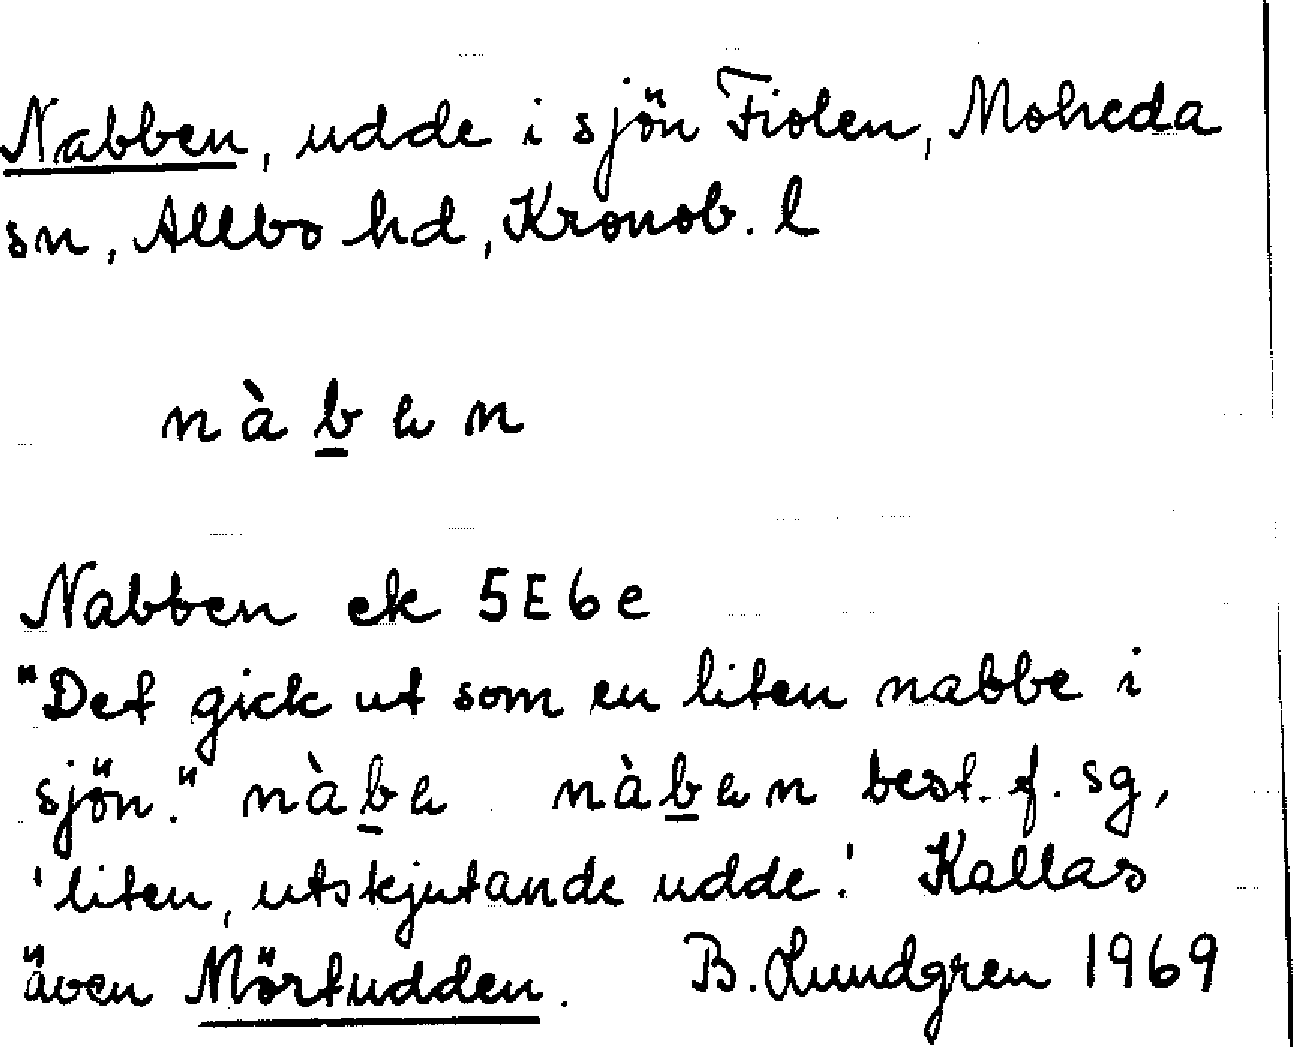 Nabben, udde i sjön Fiolen, Moheda
sn, Allbo hd, Kronob. l
nàb̲en
Nabben ek 5E6e
"Det gick ut som en liten nabbe i
sjön." nàb̲e nàb̲en best. f. sg,
'liten, utskjutande udde.' Kallas
även Mörtudden. B. Lundgren 1969